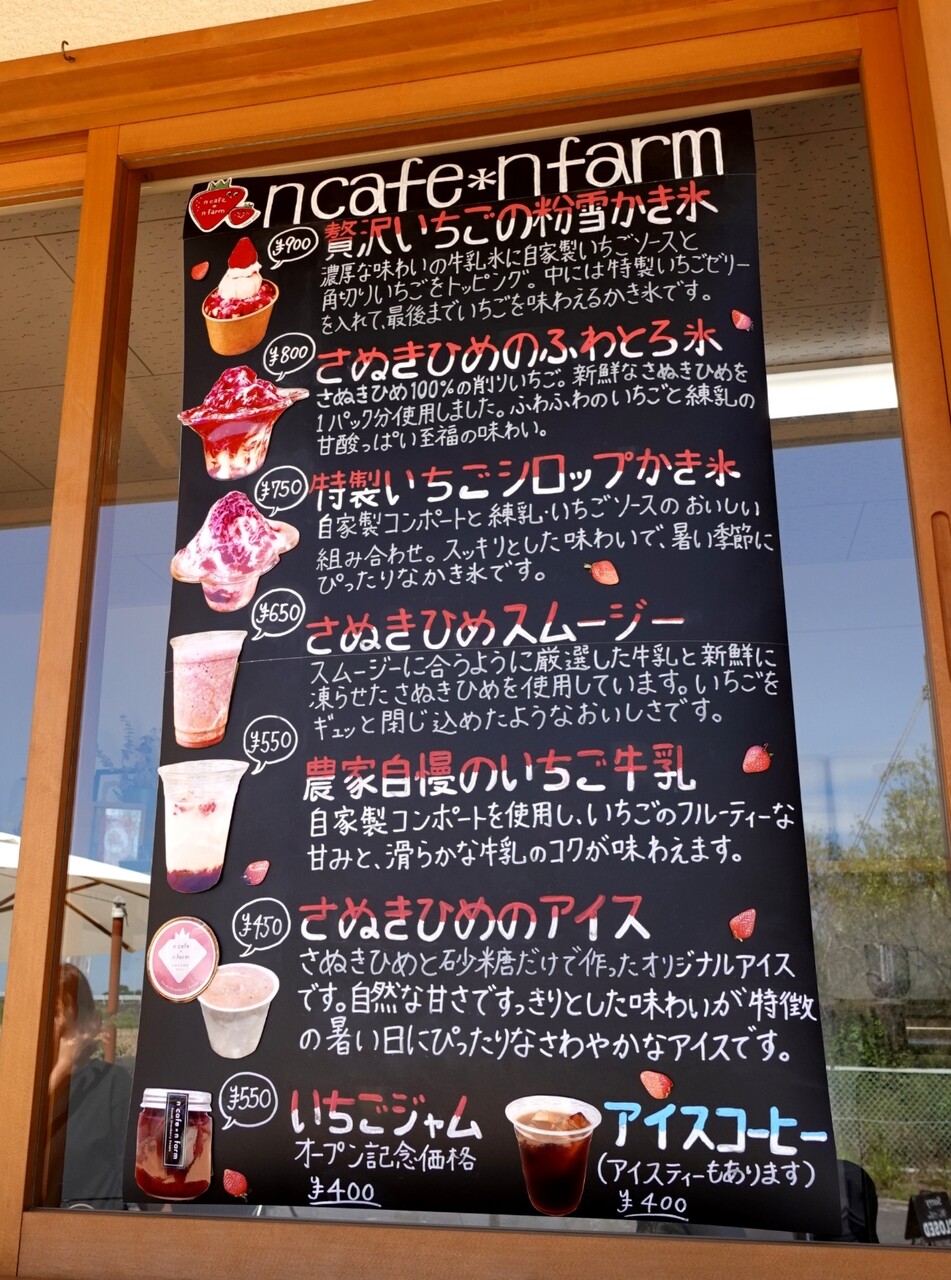 ncafe*nfarm
n cafe
*
n farm
¥900
贅沢いちごの粉雪かき氷
濃厚な味わいの牛乳氷に自家製いちごソースと
角切りいちごをトッピング。中には特製いちごゼリー
を入れて、最後までいちごを味わえるかき氷です。
¥800
さぬきひめのふわとろ氷
さぬきひめ100%の削りいちご。新鮮なさぬきひめを
1パック分使用しました。ふわふわのいちごと練乳の
甘酸っぱい至福の味わい。
¥750
特製いちごシロップかき氷
自家製コンポートと練乳・いちごソースのおいしい
組み合わせ。スッキリとした味わいで、暑い季節に
ぴったりなかき氷です。
¥650
さぬきひめスムージー
スムージーに合うように厳選した牛乳と新鮮に
凍らせたさぬきひめを使用しています。いちごを
ギュッと閉じ込めたようなおいしさです。
¥550
農家自慢のいちご牛乳
自家製コンポートを使用し、いちごのフルーティーな
甘みと、滑らかな牛乳のコクが味わえます。
¥450
さぬきひめのアイス
n cafe
*
n farm
さぬきひめと砂糖だけで作ったオリジナルアイス
です。自然な甘さですっきりとした味わいが特徴
の暑い日にぴったりなさわやかなアイスです。
¥550
いちごジャム
オープン記念価格
¥400
n cafe * n farm
アイスコーヒー
(アイスティーもあります)
¥400
CLOSED